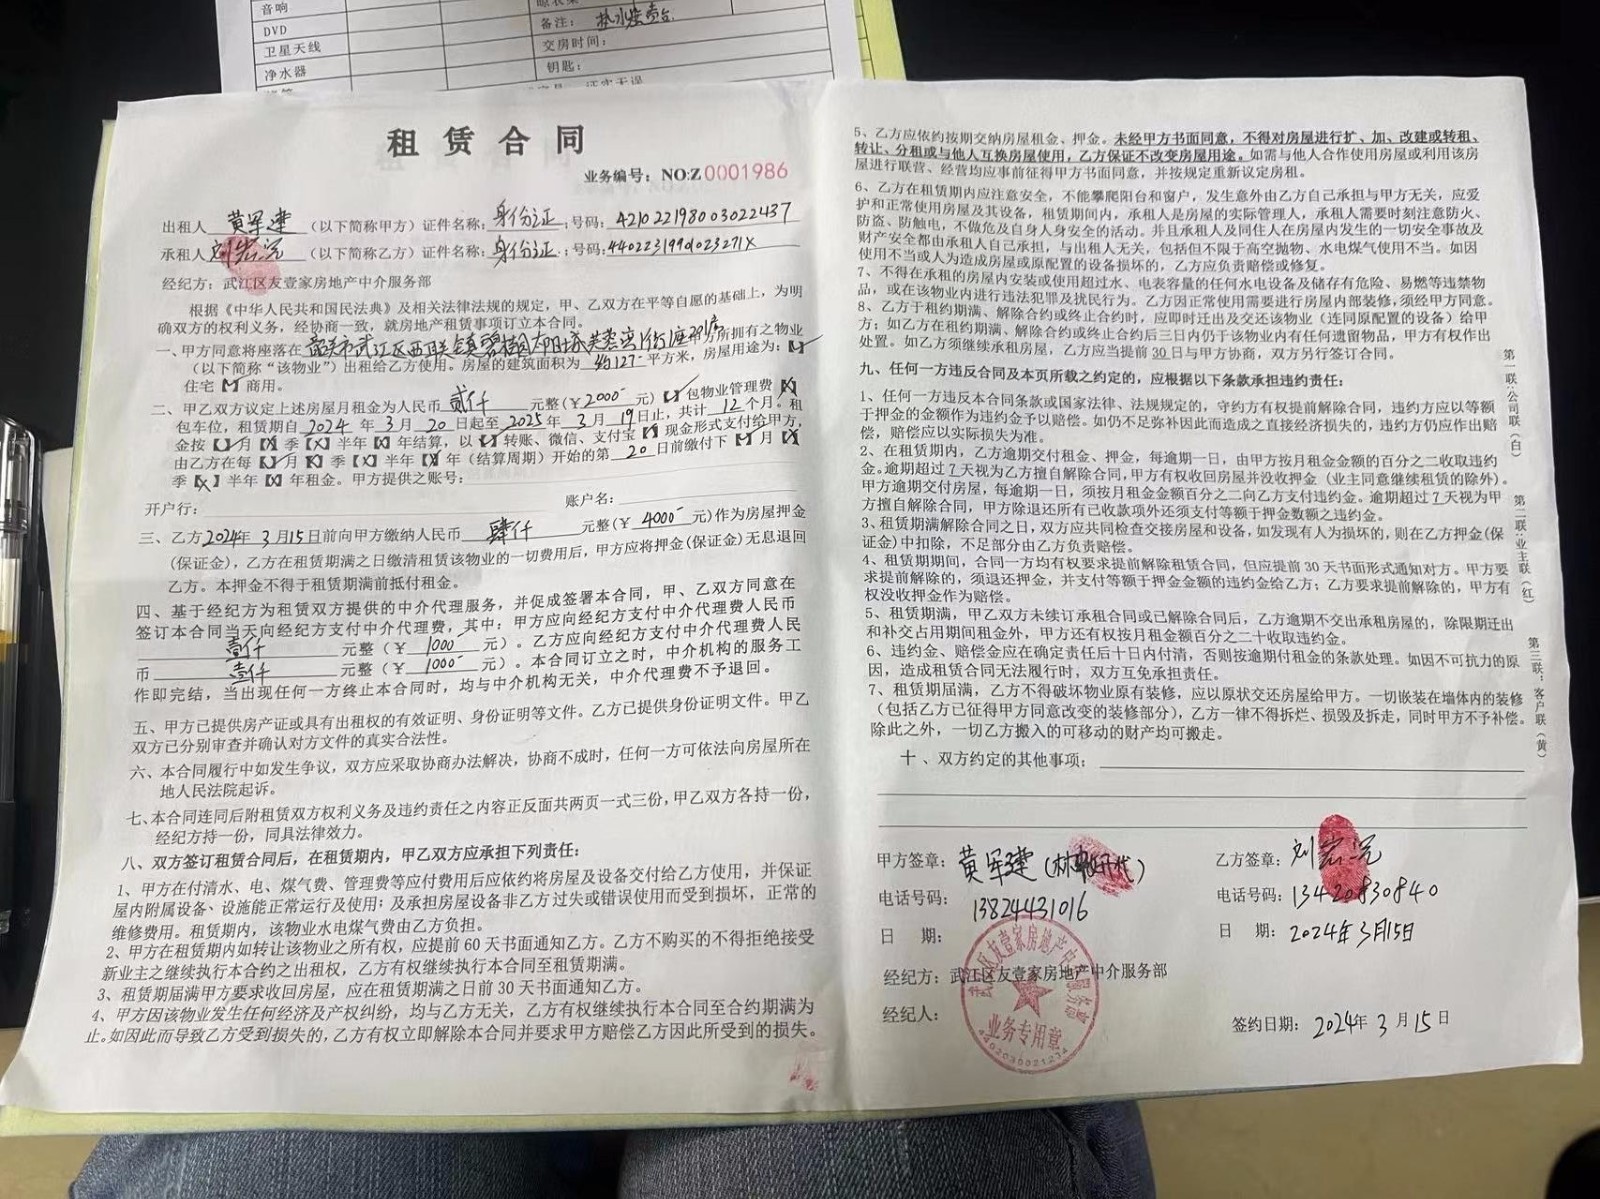 音响
DVD
卫星天线
净水器
备注：热水
交房时间：
钥匙：
租 赁 合 同
业务编号：NO:Z0001986
出租人 黄军建 （以下简称甲方）证件名称：身份证；号码：421022198003022437
承租人 刘 （以下简称乙方）证件名称：身份证；号码：4402231991023271X
经纪方：武江区友壹家房地产中介服务部
根据《中华人民共和国民法典》及相关法律法规的规定，甲、乙双方在平等自愿的基础上，为明
确双方的权利义务，经协商一致，就房地产租赁事项订立本合同。
一、甲方同意将座落在 韶关市武江区西联镇碧桂园太阳城芙蓉湾1街1座 甲方所拥有之物业
（以下简称“该物业”）出租给乙方使用。房屋的建筑面积为 约127 平方米，房屋用途为：【✓】
住宅【】商用。
二、甲乙双方议定上述房屋月租金为人民币 贰仟 元整（￥2000）【✓】包物业管理费【X】
包车位，租赁期自 2024 年 3 月 20 日起至 2025 年 3 月 19 日止，共计 12 个月。租
金按【✓】月【X】季【X】半年【X】年结算，以【✓】转账、微信、支付宝【】现金形式支付给甲方，
由乙方在每【✓】月【X】季【X】半年【X】年（结算周期）开始的第 20 日前缴付下【✓】月【X】
季【X】半年【X】年租金。甲方提供之账号：
开户行： 账户名：
三、乙方2024年3月15日前向甲方缴纳人民币 肆仟 元整（￥4000）作为房屋押金
（保证金），乙方在租赁期满之日缴清租赁该物业的一切费用后，甲方应将押金(保证金)无息退回
乙方。本押金不得于租赁期满前抵付租金。
四、基于经纪方为租赁双方提供的中介代理服务，并促成签署本合同，甲、乙双方同意在
签订本合同当天向经纪方支付中介代理费，其中：甲方应向经纪方支付中介代理费人民币
壹仟 元整（￥ 1000 元）。乙方应向经纪方支付中介代理费人民
币 壹仟 元整（￥ 1000 元）。本合同订立之时，中介机构的服务工
作即完结，当出现任何一方终止本合同时，均与中介机构无关，中介代理费不予退回。
五、甲方已提供房产证或具有出租权的有效证明、身份证明等文件。乙方已提供身份证明文件。甲乙
双方已分别审查并确认对方文件的真实合法性。
六、本合同履行中如发生争议，双方应采取协商办法解决，协商不成时，任何一方可依法向房屋所在
地人民法院起诉。
七、本合同连同后附租赁双方权利义务及违约责任之内容正反面共两页一式三份，甲乙双方各持一份，
经纪方持一份，同具法律效力。
八、双方签订租赁合同后，在租赁期内，甲乙双方应承担下列责任：
1、甲方在付清水、电、煤气费、管理费等应付费用后应依约将房屋及设备交付给乙方使用，并保证
屋内附属设备、设施能正常运行及使用；及承担房屋设备非乙方过失或错误使用而受到损坏，正常的
维修费用。租赁期内，该物业水电煤气费由乙方负担。
2、甲方在租赁期内如转让该物业之所有权，应提前60天书面通知乙方。乙方不购买的不得拒绝接受
新业主之继续执行本合约之出租权，乙方有权继续执行本合同至租赁期满。
3、租赁期届满甲方要求收回房屋，应在租赁期满之日前30天书面通知乙方。
4、甲方因该物业发生任何经济及产权纠纷，均与乙方无关，乙方有权继续执行本合同至合约期满为
止。如因此而导致乙方受到损失的，乙方有权立即解除本合同并要求甲方赔偿乙方因此所受到的损失。
5、乙方应依约按期交纳房屋租金、押金。未经甲方书面同意，不得对房屋进行扩、加、改建或转租、
转让、分租或与他人互换房屋使用，乙方保证不改变房屋用途。如需与他人合作使用房屋或利用该房
屋进行联营、经营均应事前征得甲方书面同意，并按规定重新议定房租。
6、乙方在租赁期内应注意安全，不能攀爬阳台和窗户，发生意外由乙方自己承担与甲方无关，应爱
护和正常使用房屋及其设备，租赁期间内，承租人是房屋的实际管理人，承租人需要时刻注意防火、
防盗、防触电，不做危及自身人身安全的活动。并且承租人及同住人在房屋内发生的一切安全事故及
财产安全都由承租人自己承担，与出租人无关，包括但不限于高空抛物、水电煤气使用不当。如因
使用不当或人为造成房屋或原配置的设备损坏的，乙方应负责赔偿或修复。
7、不得在承租的房屋内安装或使用超过水、电表容量的任何水电设备及储存有危险、易燃等违禁物
品，或在该物业内进行违法犯罪及扰民行为。乙方因正常使用需要进行房屋内部装修，须经甲方同意。
8、乙方于租约期满、解除合约或终止合约时，应即时迁出及交还该物业（连同原配置的设备）给甲
方；如乙方在租约期满、解除合约或终止合约后三日内仍于该物业内有任何遗留物品，甲方有权作出
处置。如乙方须继续承租房屋，乙方应当提前30日与甲方协商，双方另行签订合同。
九、任何一方违反合同及本页所载之约定的，应根据以下条款承担违约责任：
1、任何一方违反本合同条款或国家法律、法规规定的，守约方有权提前解除合同，违约方应以等额
于押金的金额作为违约金予以赔偿。如仍不足弥补因此而造成之直接经济损失的，违约方仍应作出赔
偿，赔偿应以实际损失为准。
2、在租赁期内，乙方逾期交付租金、押金，每逾期一日，由甲方按月租金金额的百分之二收取违约
金。逾期超过7天视为乙方擅自解除合同，甲方有权收回房屋并没收押金（业主同意继续租赁的除外）。
甲方逾期交付房屋，每逾期一日，须按月租金金额百分之二向乙方支付违约金。逾期超过7天视为甲
方擅自解除合同，甲方除退还所有已收款项外还须支付等额于押金数额之违约金。
3、租赁期满解除合同之日，双方应共同检查交接房屋和设备，如发现有人为损坏的，则在乙方押金(保
证金)中扣除，不足部分由乙方负责赔偿。
4、租赁期期间，合同一方均有权要求提前解除租赁合同，但应提前30天书面形式通知对方。甲方要
求提前解除的，须退还押金，并支付等额于押金金额的违约金给乙方；乙方要求提前解除的，甲方有
权没收押金作为赔偿。
5、租赁期满，甲乙双方未续订承租合同或已解除合同后，乙方逾期不交出承租房屋的，除限期迁出
和补交占用期间租金外，甲方还有权按月租金额百分之二十收取违约金。
6、违约金、赔偿金应在确定责任后十日内付清，否则按逾期付租金的条款处理。如因不可抗力的原
因，造成租赁合同无法履行时，双方互免承担责任。
7、租赁期届满，乙方不得破坏物业原有装修，应以原状交还房屋给甲方。一切嵌装在墙体内的装修
（包括乙方已征得甲方同意改变的装修部分），乙方一律不得拆烂、损毁及拆走，同时甲方不予补偿。
除此之外，一切乙方搬入的可移动的财产均可搬走。
十、双方约定的其他事项：
第一联：公司联（白）
第二联：业主联（红）
第三联：客户联（黄）
甲方签章：黄军建（林 代）
电话号码：13824431016
日 期：
经纪方：武江区友壹家房地产中介服务部
经纪人：
乙方签章：刘
电话号码：13420830840
日 期：2024年3月15日
签约日期：2024年3月15日
武江区友壹家房地产中介服务部
业务专用章